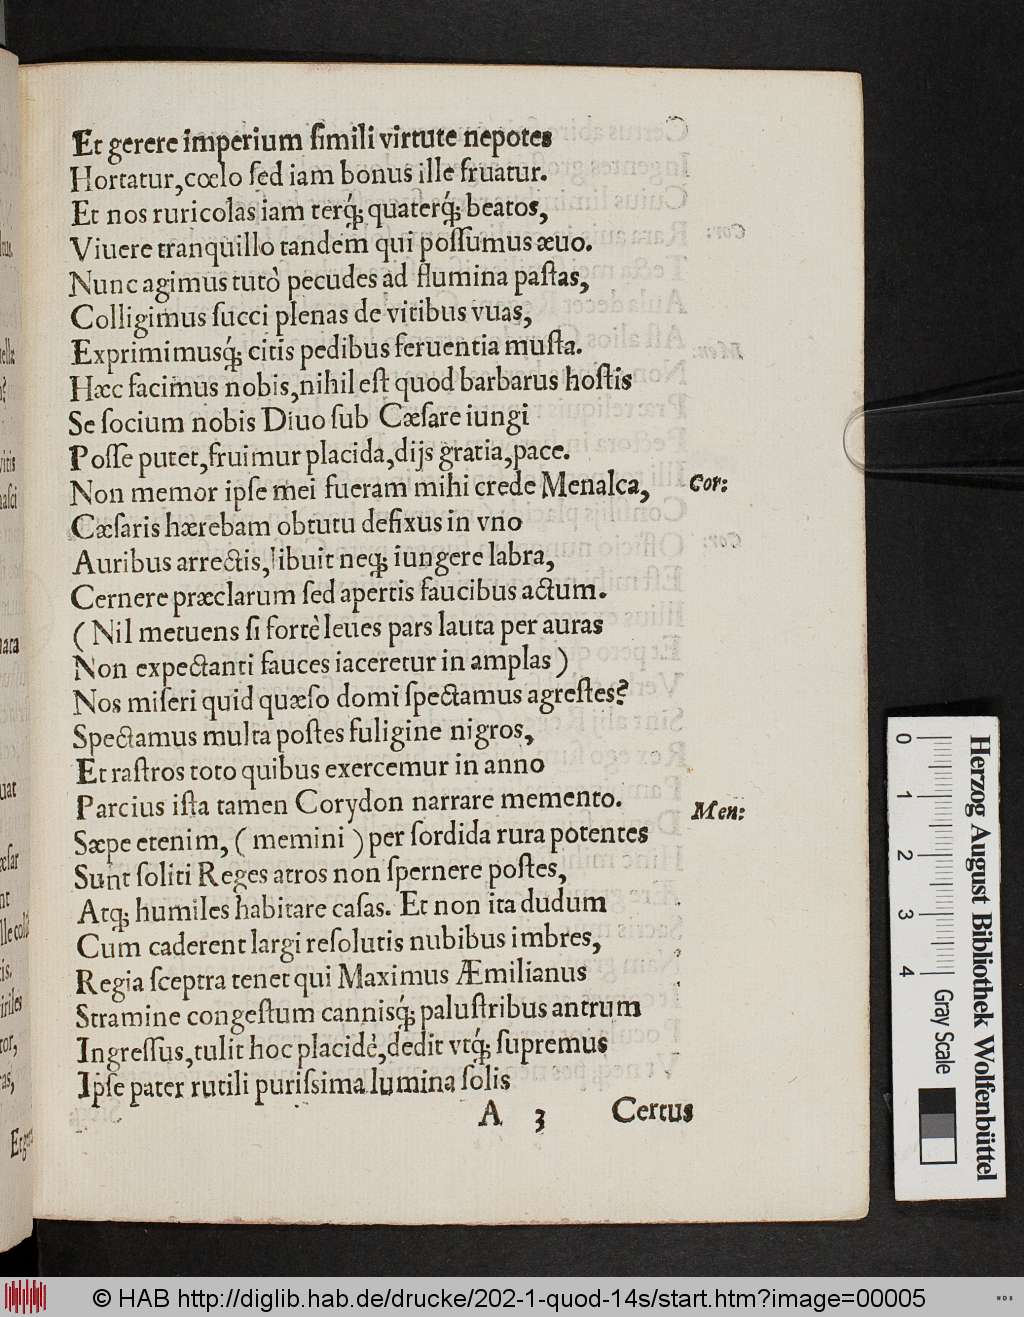 Et gerere imperium ſimili virtute nepotes
Hortatur,cœlo ſed iam bonus ille fruatur.
Et nos ruricolas iam terq́; quaterq́; beatos,
Viuere tranquillo tandem qui poſſumus æuo.
Nunc agimus tutò pecudes ad flumina paſtas,
Colligimus ſucci plenas de vitibus vuas,
Exprimimusq́; citis pedibus feruentia muſta.
Hæc facimus nobis,nihil eſt quod barbarus hoſtis
Se ſocium nobis Diuo ſub Cæſare iungi
Poſſe putet,fruimur placida,dijs gratia,pace.
Non memor ipſe mei fueram mihi crede Menalca, Cor:
Cæſaris hærebam obtutu defixus in vno
Auribus arrectis,libuit neq; iungere labra,
Cernere præclarum ſed apertis faucibus actum.
(Nil metuens ſi fortè leues pars lauta per auras
Non expectanti fauces iaceretur in amplas)
Nos miſeri quid quæſo domi ſpectamus agreſtes?
Spectamus multa poſtes fuligine nigros,
Et raſtros toto quibus exercemur in anno
Parcius iſta tamen Corydon narrare memento. Men:
Sæpe etenim, (memini) per ſordida rura potentes
Sunt ſoliti Reges atros non ſpernere poſtes,
Atq; humiles habitare caſas. Et non ita dudum
Cum caderent largi reſolutis nubibus imbres,
Regia ſceptra tenet qui Maximus Æmilianus
Stramine congeſtum cannisq́; paluſtribus antrum
Ingreſſus,tulit hoc placidè,dedit vtq́; ſupremus
Ipſe pater rutili puriſsima lumina ſolis
A 3 Certus
0 1 2 3 4
Herzog August Bibliothek Wolfenbüttel
Gray Scale
© HAB http://diglib.hab.de/drucke/202-1-quod-14s/start.htm?image=00005